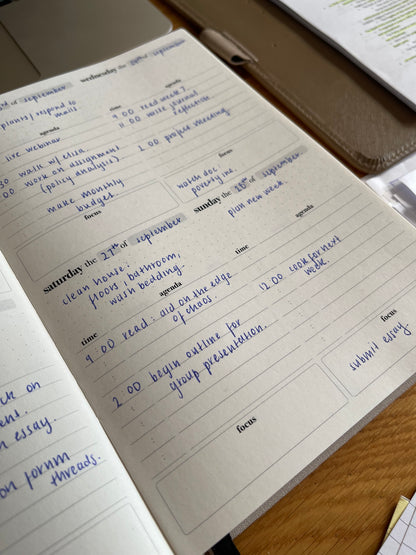 rd of september
plants / respond to
mails
agenda
live webinar
30 walk w/ eliza
00 work on assignment
(policy analysis)
make monthly
budget
focus
wednesday the 24th of september
time agenda
9 00 read week 7
11 00 write journal
reflection
00 project meeting
focus
watch doc
poverty inc.
saturday the 27th of september
clean house:
floors, bathroom,
wash bedding.
time agenda
9 00 read: aid on the edge
of chaos.
2 00 begin outline for
group presentation.
focus
sunday the 28th of september
plan new week.
time agenda
12 00 cook for next
week.
focus
submit essay
ck on
essay.
on forum
threads.